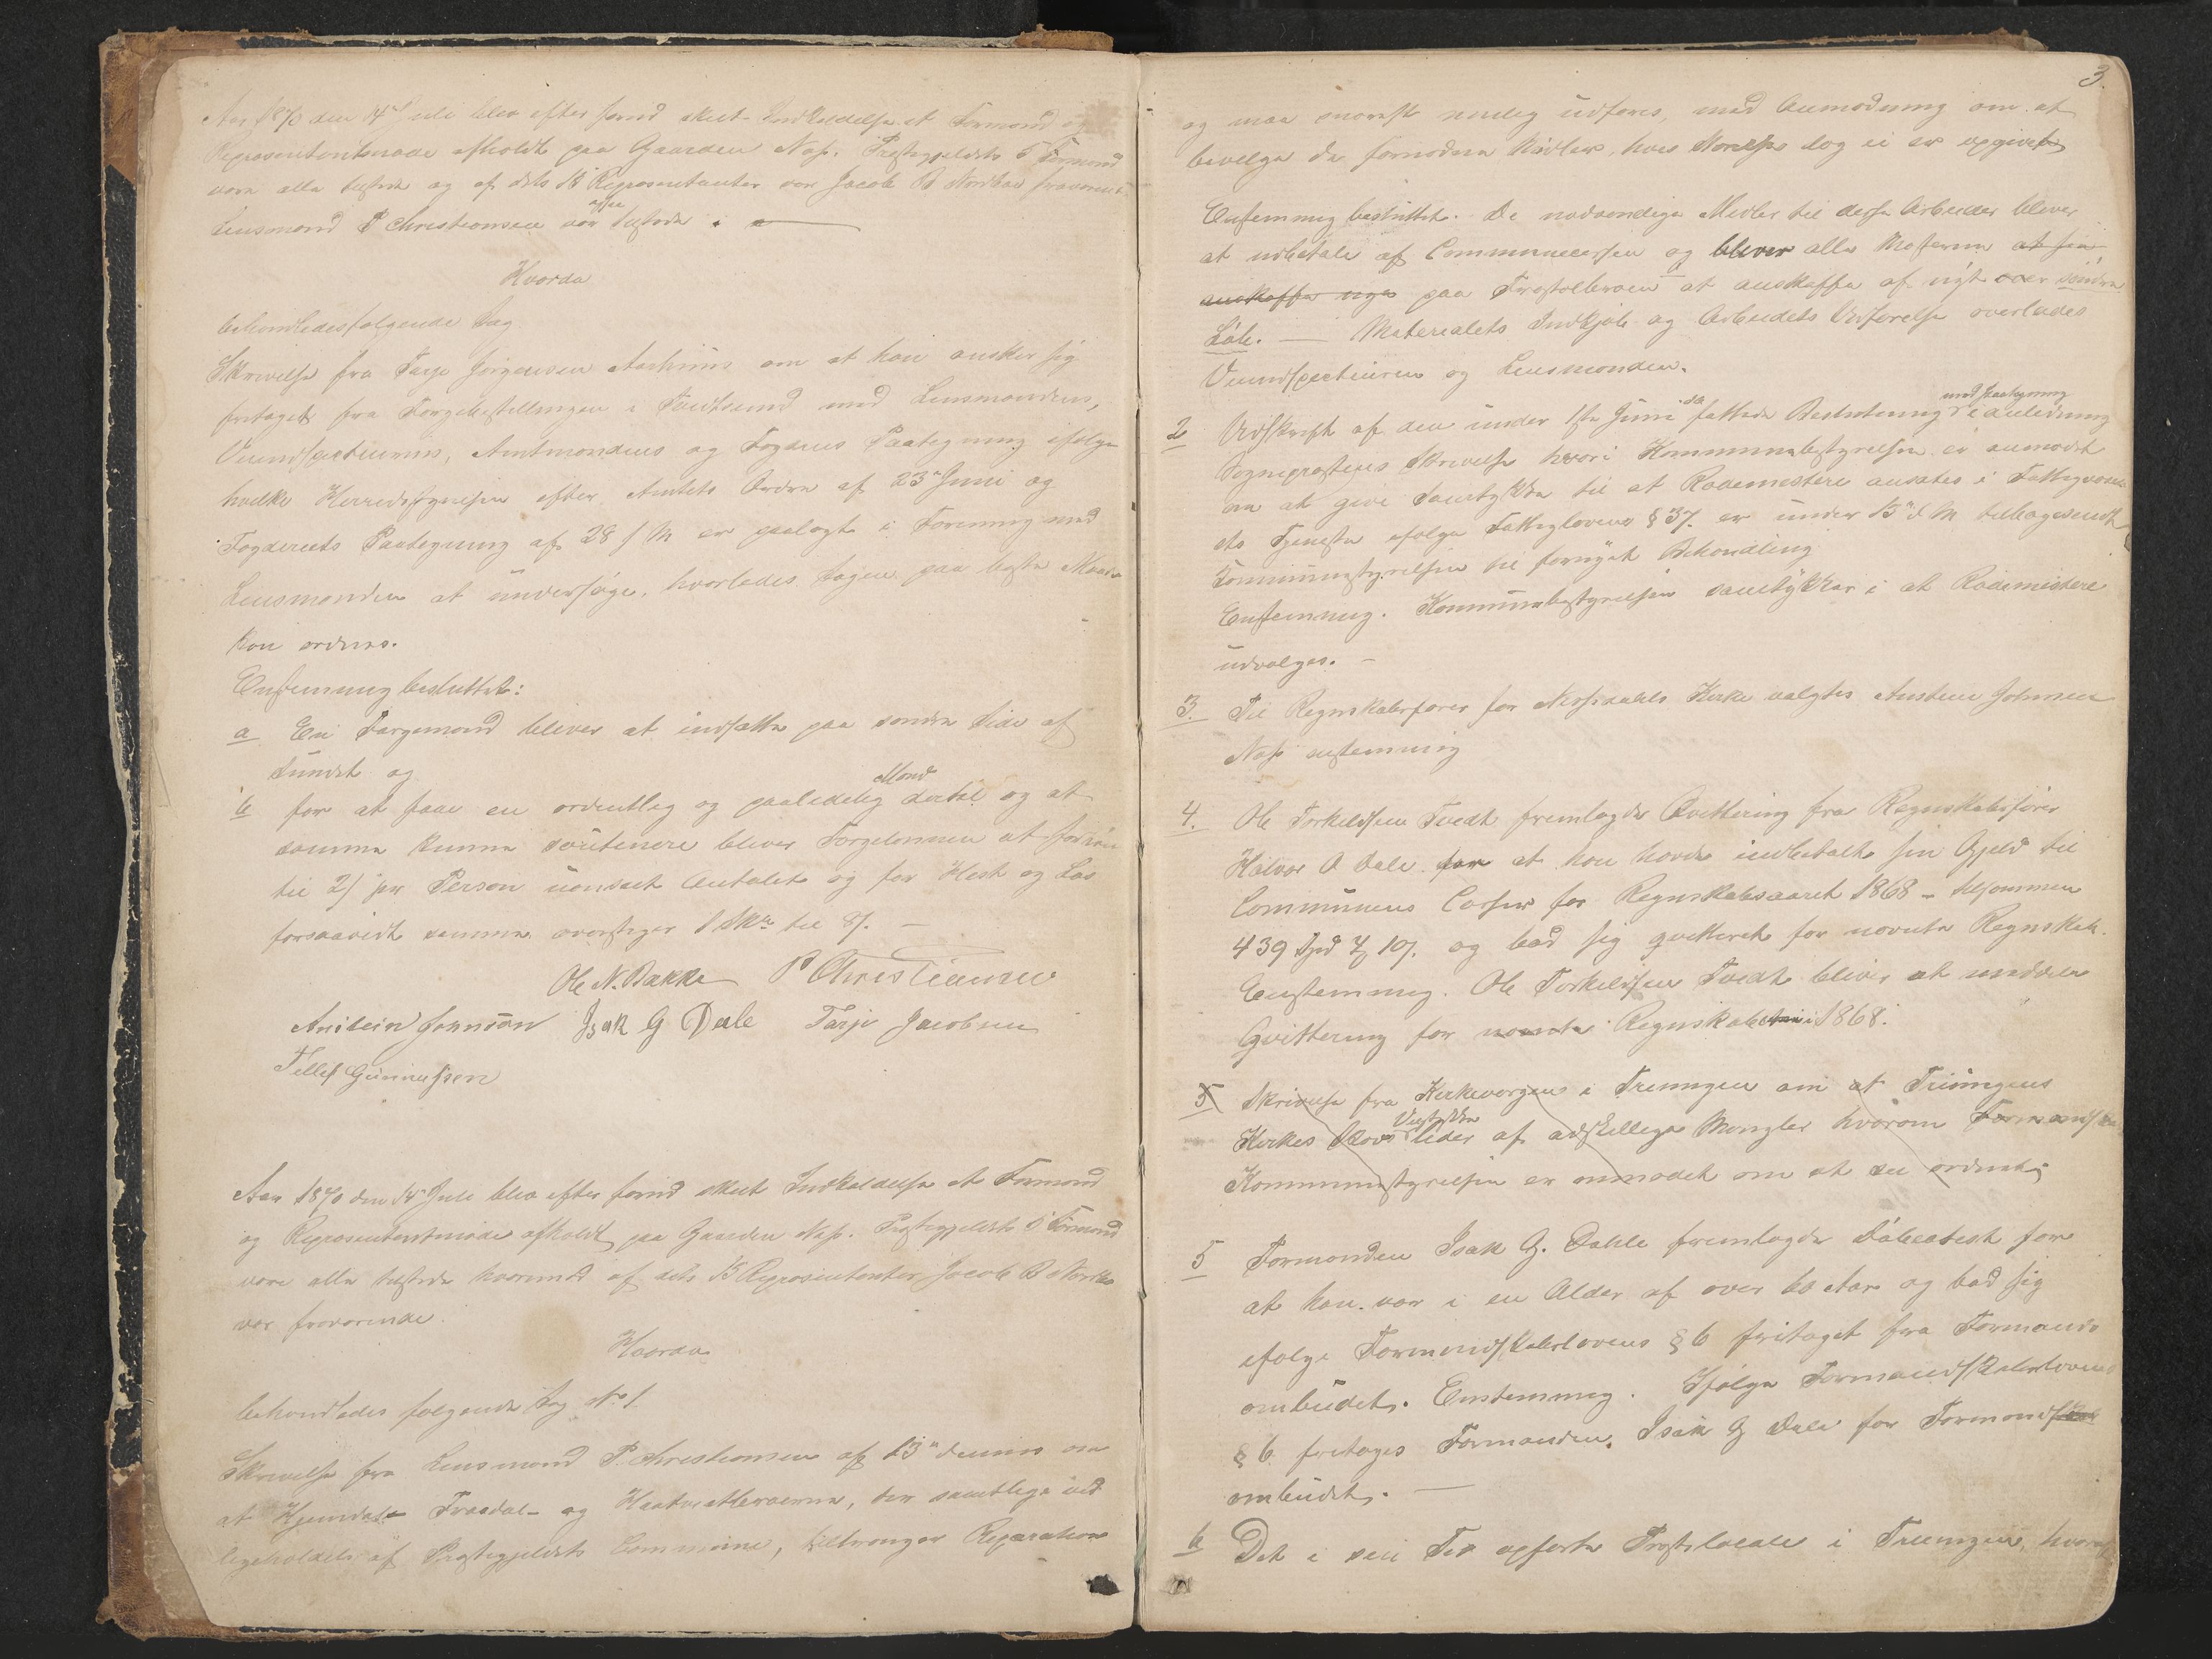 Aar 1870 den 14de Juli blev efter forud skeet Indkaldelse et Formand og
Repræsentantmøde afholdt paa Gaarden Næs. Præstegjeldets 5 Formænd
vare alle tilstede og af dets 15 Repræsentanter var Jacob B Nordbø fraværende
Lensmand P Christiansen var ogsaa tilstede.
Hvorda
behandledes følgende Sag
Skrivelse fra Tarje Jørgensen om at han ønsker sig
fritaget fra Færgebestillingen i Tveitsund med Lensmandens,
Veiinspecteurens, Amtmandens og Fogdens Paategning ifølge
hvilke Herredstyrelsen efter Amtets Ordre af 23de Juni og
Fogderiets Paategning af 28 s M er paalagt i Forening med
Lensmanden at undersøge, hvorledes Sagen paa beste Maade
kan ordnes.
Enstemmig besluttet:
a En Færgemand bliver at indsætte paa søndre Side af
Sundet og
b for at faae en ordentlig og paalidelig Mand dertil og at
samme kunne soutenere bliver Færgelønnen at forhøie
til 2 s pr Person uanseet Antalet og for Hest og Læs
forsaavidt samme overstiger 1 Sk℔ til 8 s. —
Ole N. Bakke P Christiansen
Anstein Jonnson Isak G Dale Tarje Jacobsen
Tellef Gunnufsen
Aar 1870 den 15de Juli blev efter forud skeet Indkaldelse et Formand
og Repræsentantmøde afholdt paa Gaarden Næs. Præstegjeldets 5 Formænd
vare alle tilstede hvorimod af dets 15 Repræsentanter Jacob B Nordbø
var fraværende.
Hvorda
behandledes følgende Sag No 1.
Skrivelse fra Lensmand P. Christiansen af 13de dennes om
at Hjemdal- Traadal- og broerne, der samtlige ved
ligeholdes af Præstegjeldets Commune, tiltrænger Reparation
3.
og maa snarest mulig udføres, med Anmodning om at
bevilge de fornødne Midler, hvis Størrelse dog ei er opgivet
Enstemmig besluttet. De nødvendige Midler til disse Arbeider bliver
at udbetale af Communecassen og bliver alle Masterne at sin
anskaffe nye paa broen at anskaffe af nyt over søndre
Løb. — Materialets Indkjøb og Arbeidets Udførelse overlades
Veiinspecteuren og Lensmanden.
2 Udskrift af den under 1ste Juni fattede Beslutning med Paategning i Anledning
Sogneprestens Skrivelse hvori Kommunebestyrelsen er anmodet
om at give Samtykke til at Rodemestere ansættes i Fattigvæse
ets Tjeneste ifølge Fattiglovens § 37. er under 15de d M tilbagesendt
Kommunestyrelsen til fornyet Behandling
Enstemmig. Kommunebestyrelsen samtykker i at Rodemestere
udvælges. —
3. Til Regnskabsfører for Kirke valgtes Anstein Johnsen
Næs enstemmig
4. Ole Torkeldsen Tvedt fremlagde Qvittering fra Regnskabsfører
Halvor O Dale for at han havde indbetalt sin Gjeld til
Communens Casse for Regnskabsaaret 1868 – tilsammen
439 Spd 4 ℔ 10 s. og bad sig qvitteret for nævnte Regnskab.
Enstemmig. Ole Torkeldsen Tvedt bliver at meddele
Qvittering for nævnte Regnskab 1868.
5 Skrivelse fra Kirkeværgen i Treungen om at Treungens
Kirkes lider af adskillige Mangler hvorom Formandska
Kommunestyrelsen er anmodet om at see ordnet
5 Formanden Isak G. Dahle fremlagde Døbeattest for
at han var i en Alder af over 60 Aar og bad sig
ifølge Formandskabslovens § 6 fritaget fra Formands
ombudet. Enstemmig. Ifølge Formandskabsloven
§ 6 fritages Formanden, Isak G Dale for Formands
ombudet. —
6 Det i sin Tid opførte Præstelocale i Treungen, hvoraf